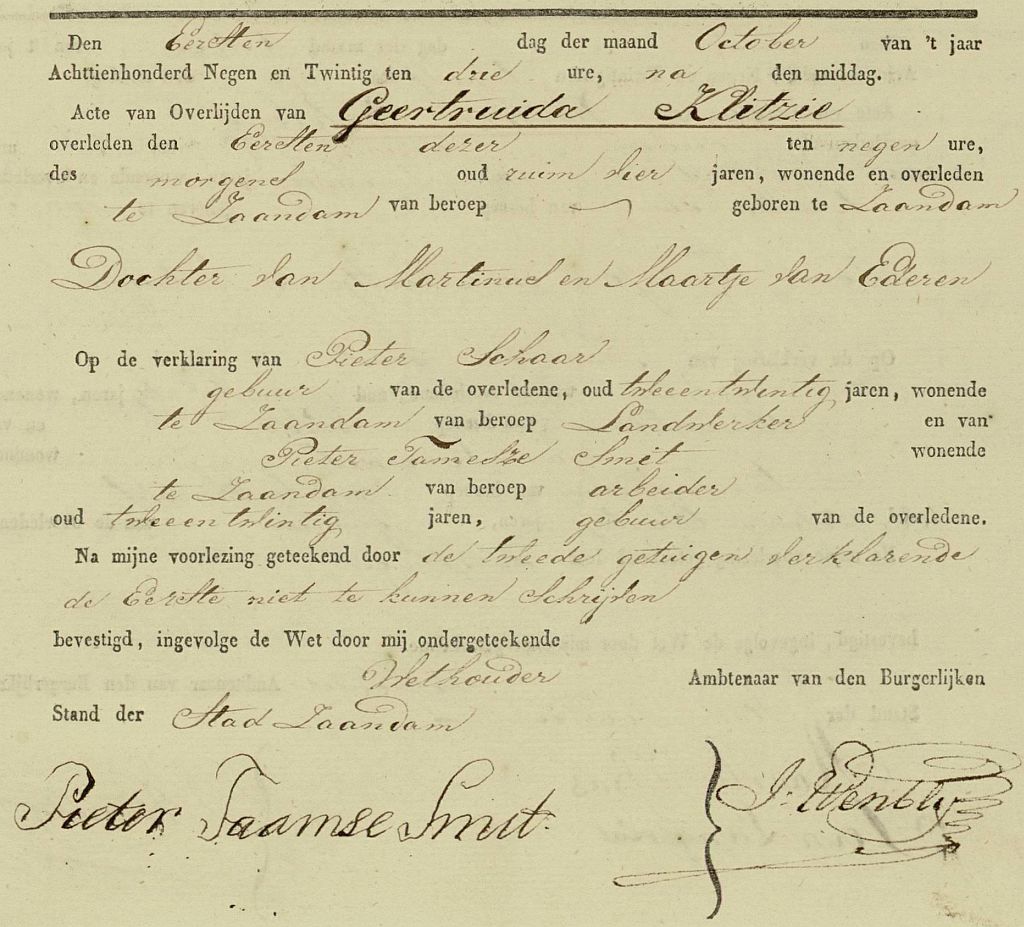 Den Eersten dag der maand October van 't jaar
Achttienhonderd Negen en Twintig ten drie ure, na den middag.
Acte van Overlijden van Geertruida Klitzie
overleden den Eersten dezer ten negen ure,
des morgens oud ruim vier jaren, wonende en overleden
te Zaandam van beroep geboren te Zaandam
Dochter van Martinus en Maartje van Ederen
Op de verklaring van Pieter Schaar
gebuur van de overledene, oud tweeentwintig jaren, wonende
te Zaandam van beroep Landwerker en van
Pieter Tamesze Smit wonende
te Zaandam van beroep arbeider
oud tweeentwintig jaren, gebuur van de overledene.
Na mijne voorlezing geteekend door de tweede getuigen verklarende
de Eerste niet te kunnen Schrijven
bevestigd, ingevolge de Wet door mij ondergeteekende
Wethouder Ambtenaar van den Burgerlijken
Stand der Stad Zaandam
Pieter Taamse Smit. J.